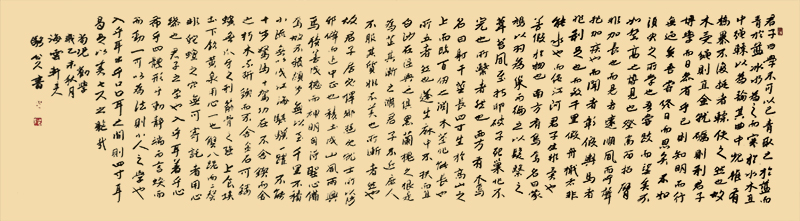 君子曰學不可以已青取之於藍而
青於藍冰水為之而寒於水木直
中繩輮以為輪其曲中規雖有
槁暴不復挺者輮使之然也故
木受繩則直金就礪則利君子
博學而日參省乎己則知明而行
無過矣吾嘗終日而思矣不如
須臾之所學也吾嘗跂而望矣不
如登高之博見也登高而招臂
非加長也而見者遠順風而呼聲
非加疾也而聞者彰假輿馬者
非利足也而致千里假舟楫者非
能水也而絕江河君子生非異也
善假於物也南方有鳥焉名曰蒙
鳩以羽為巢而編之以髮繫之
葦苕風至苕折卵破子死巢非不
完也所繫者然也西方有木焉
名曰射干莖長四寸生於高山之
上而臨百仞之淵木莖非能長也
所立者然也蓬生麻中不扶而直
白沙在涅與之俱黑蘭槐之根是
為芷其漸之滫君子不近庶人
不服其質非不美也所漸者然也
故君子居必擇鄉遊必就士所以防
邪僻而近中正也積土成山風雨興
焉積善成德而神明自得聖心備
焉故不積蹞步無以至千里不積
小流無以成江海騏驥一躍不能
十步駑馬十駕功在不舍鍥而舍
之朽木不折鍥而不舍金石可鏤
螾無爪牙之利筋骨之強上食埃
土下飲黃泉用心一也蟹八跪而二螯
非蛇蟺之穴無可寄託者用心
躁也君子之學也入乎耳著乎心
布乎四體形乎動靜端而言蝡而
動一可以為法則小人之學也
入乎耳出乎口口耳之間則四寸耳
曷足以美七尺之軀哉
荀況勸學
秋月
海雲軒主
書